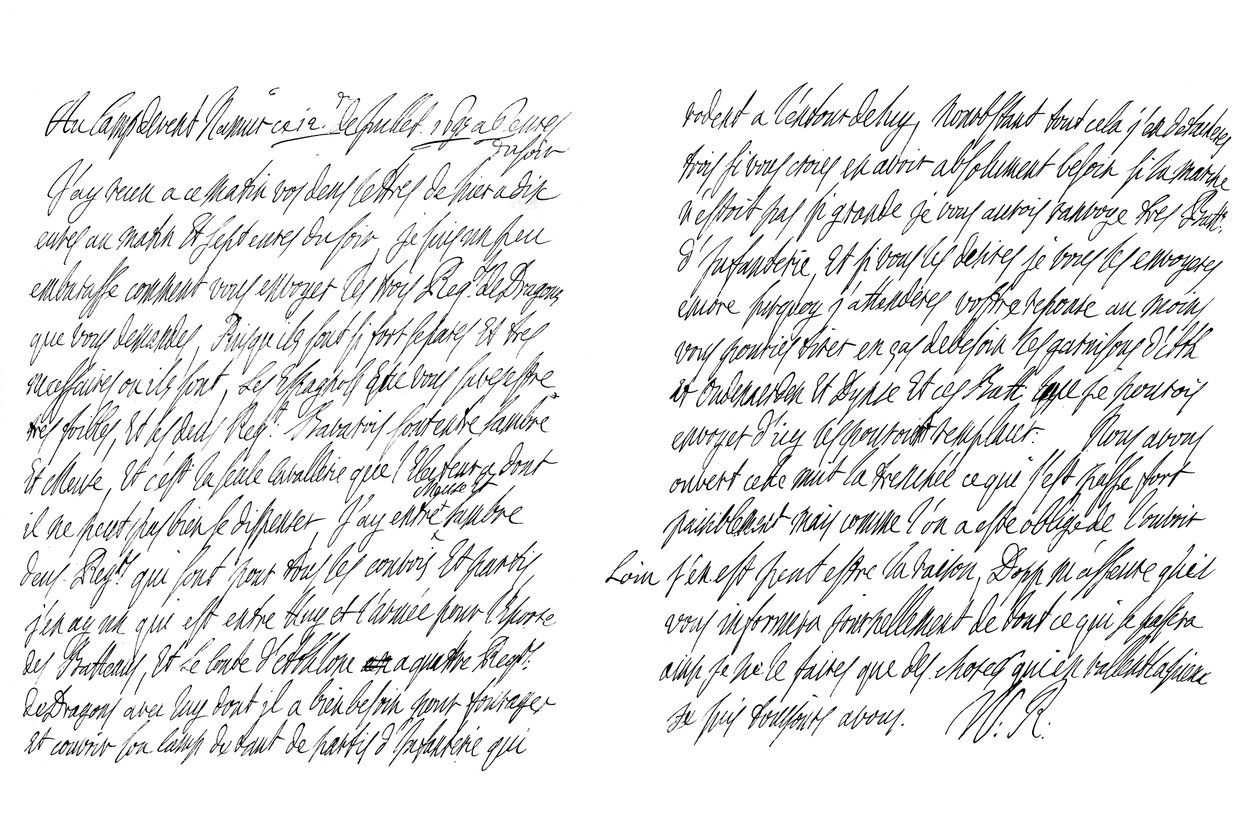 Au Camp devent Namur ce 12. de Juillet. 1695 a 9 eures
du soir
J'ay receu a ce matin vos deus lettres de hier a dix
eures au matin Et sept eures du soir je suis un peu
embarasse comment vous envoyer les trois Regts. de Dragons
que vous demandes, Puisqu'ils sont si fort separes Et tres
necessaires ou ils sont, Les Espagnols que vous saves estre
tres foibles, Et les deus Regts. Bavarois sont entre Sambre
Et Meuse, Et c'est la seule Cavallerie que l'Electeur a dont
il ne peut pas bien se dispenser, J'ay entre Meuse Et Sambre
deus Regts. qui sont pour tous les convois Et partis,
j'en ay un qui est entre Huy et l'armée pour l'Escorte
des Batteaus, Et Le Conte d'Athlone a quattre Regts.
de Dragons avec luy dont il a bien besoin pour fourager
Et couvrir son Camp devant de partis d'Infanterie qui
rodent a l'entour de luy, Nonobstant tout cela j'en detacheres
trois si vous croies en avoir absolument besoin si la marche
n'estoit pas si grande je vous aurois ranvoye tres Batts.
d'Infanterie, Et si vous les desires je vous les envoyeres
encore surquoy j'attenderes vostre reponse au moins
vous pouries tirer en cas de besoin les garnisons d'Ath
et Oudenarden Et Dynse Et ces Batt. que je pourois
envoyer d'icy les pouroit remplacer. Nous avons
ouvert cette nuit la trenchée ce qui s'est passe fort
paisiblement mais comme l'on a este oblige de l'ouvrir
Loin s'en est peut estre la raison, Dopp m'asseure qu'il
vous informera journellement de tout ce qui se passera
ainsi je ne le faires que des choses qui en vallent la peine
Je suis tousjours a vous. W. R.